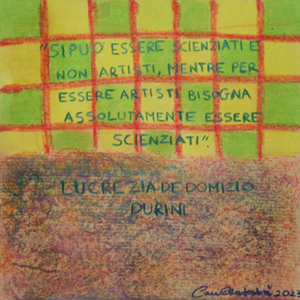 "SI PUÒ ESSERE SCIENZIATI E
NON ARTISTI, MENTRE PER
ESSERE ARTISTI BISOGNA
ASSOLUTAMENTE ESSERE
SCIENZIATI".
LUCREZIA DE DOMIZIO
DURINI
2023